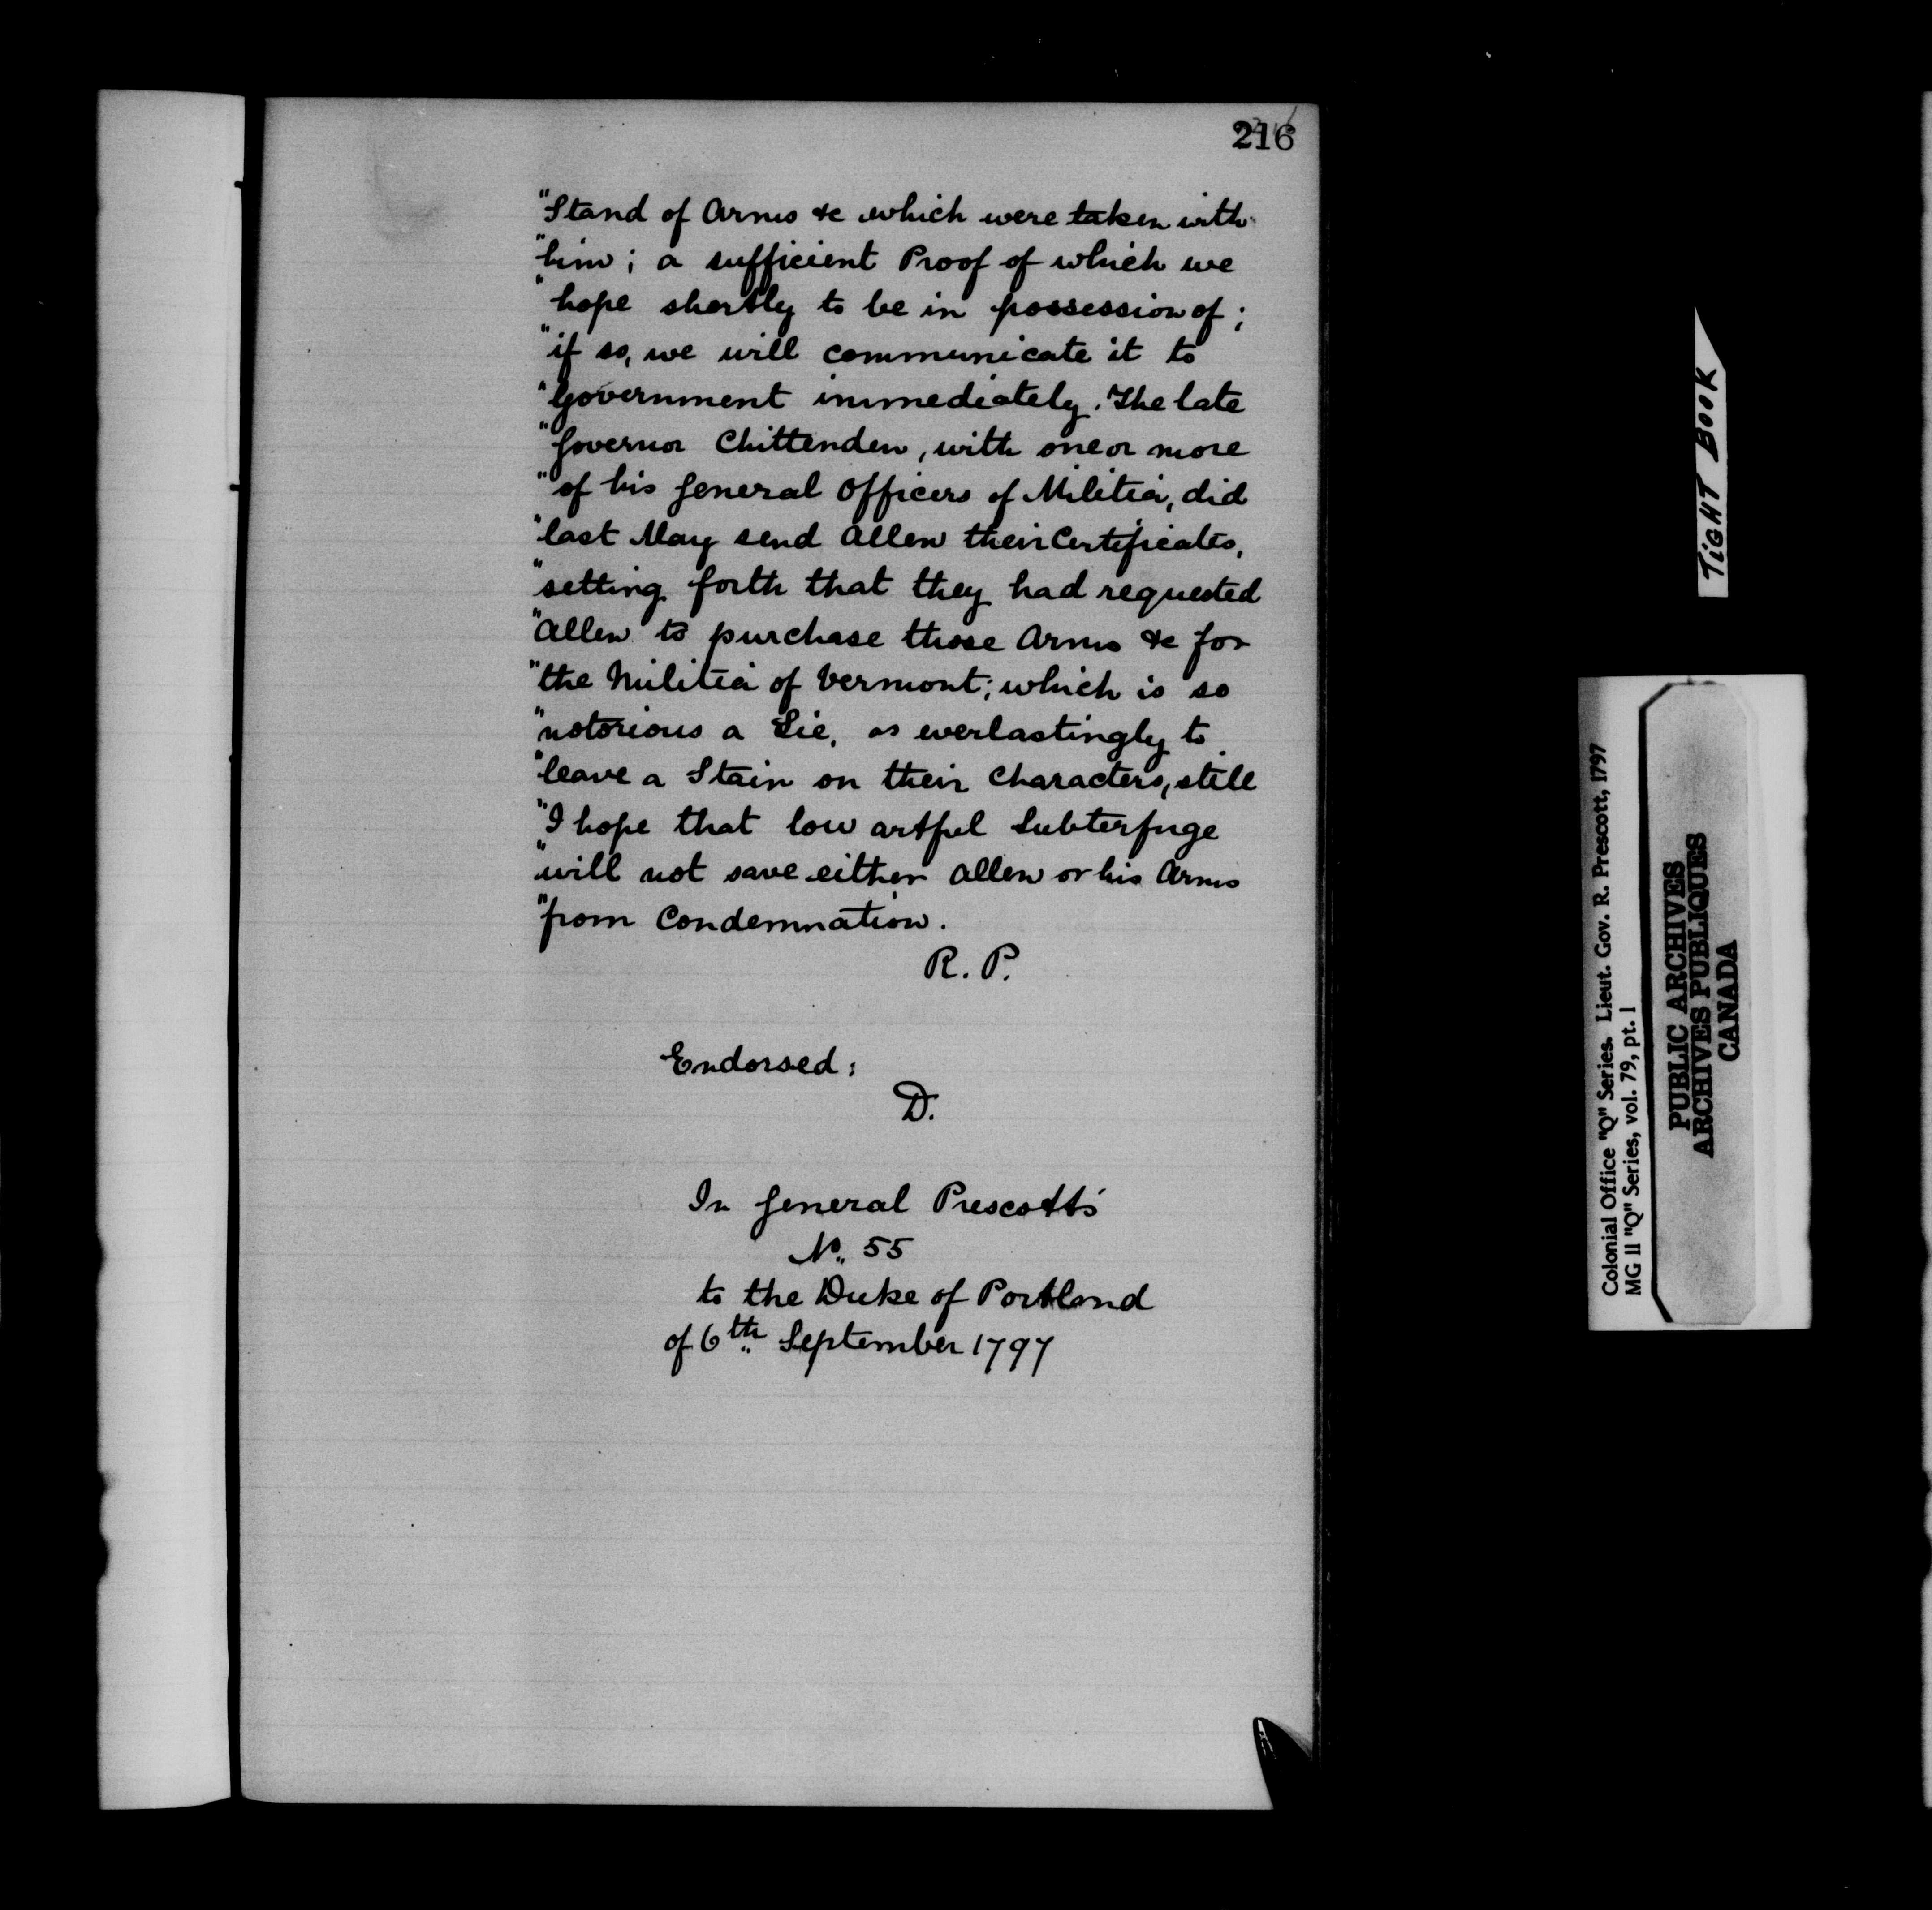 216
"Stand of Arms &c which were taken with
"him; a sufficient Proof of which we
"hope shortly to be in possession of;
"if so, we will communicate it to
"Government immediately. The late
"Governor Chittenden, with one or more
"of his General Officers of Militia, did
"last May send Allen their Certificates,
"setting forth that they had requested
"Allen to purchase those Arms &c for
"the Militia of Vermont; which is so
"notorious a Lie, as everlastingly to
"leave a Stain on their Characters, still
"I hope that low artful Subterfuge
"will not save either Allen or his Arms
"from Condemnation.
R. P.
Endorsed:
D.
In General Prescott's
No. 55
to the Duke of Portland
of 6th September 1797
TIGHT BOOK
Colonial Office "Q" Series. Lieut. Gov. R. Prescott, 1797
MG 11 "Q" Series, vol. 79, pt. 1
PUBLIC ARCHIVES
ARCHIVES PUBLIQUES
CANADA